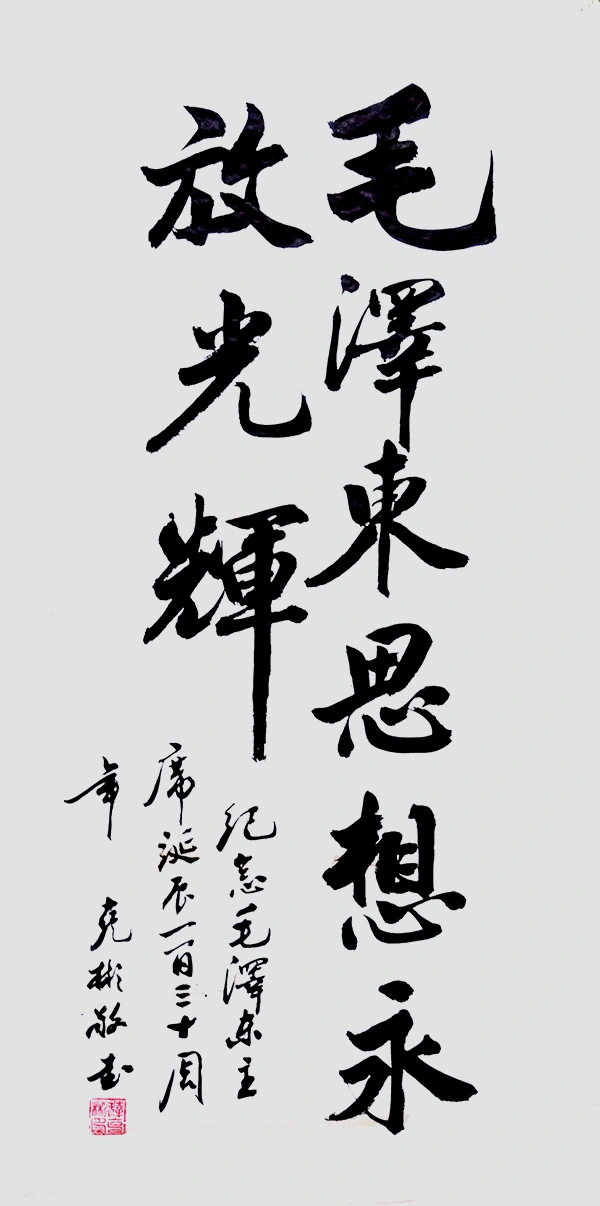 毛澤東思想永
放光輝
纪念毛澤东主
席诞辰一百三十周
年 尧彬敬书